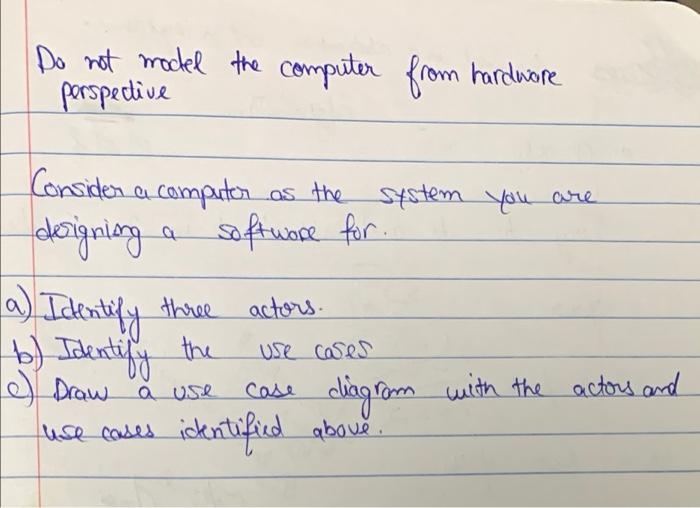 Do not model the computer from hardware
perspective
Consider a computer as the system you are
designing a software for.
a) Identify three actors.
b) Identify the use cases
c) Draw a use case diagram with the actors and
use cases identified above.